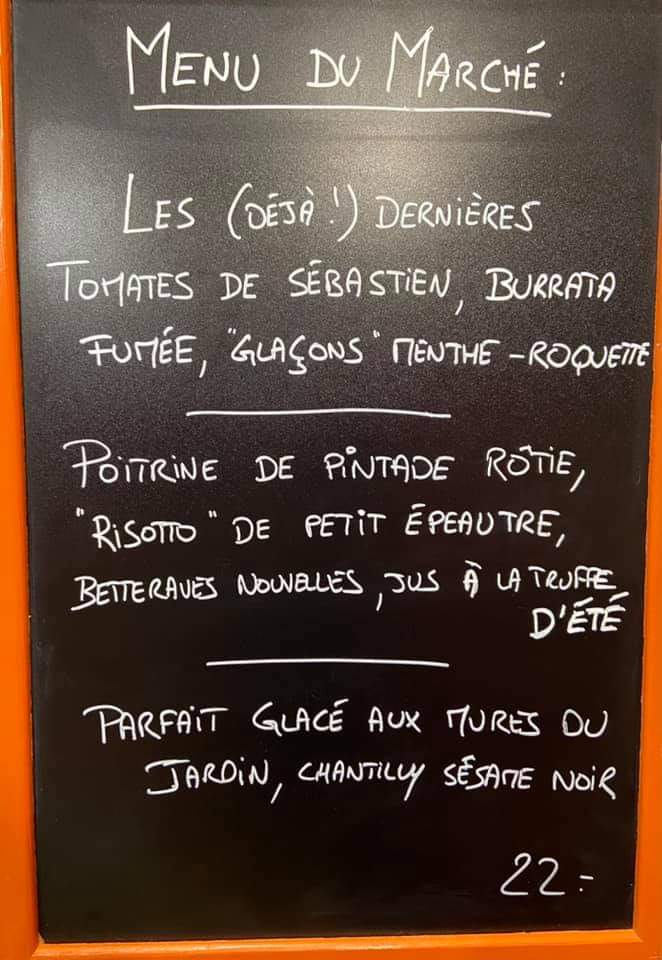 MENU DU MARCHÉ :
LES (DÉJÀ !) DERNIÈRES
TOMATES DE SÉBASTIEN, BURRATA
FUMÉE, "GLAÇONS" MENTHE - ROQUETTE
POITRINE DE PINTADE RÔTIE,
"RISOTTO" DE PETIT ÉPEAUTRE,
BETTERAVES NOUVELLES, JUS À LA TRUFFE
D'ÉTÉ
PARFAIT GLACÉ AUX MURES DU
JARDIN, CHANTILLY SÉSAME NOIR
22.-